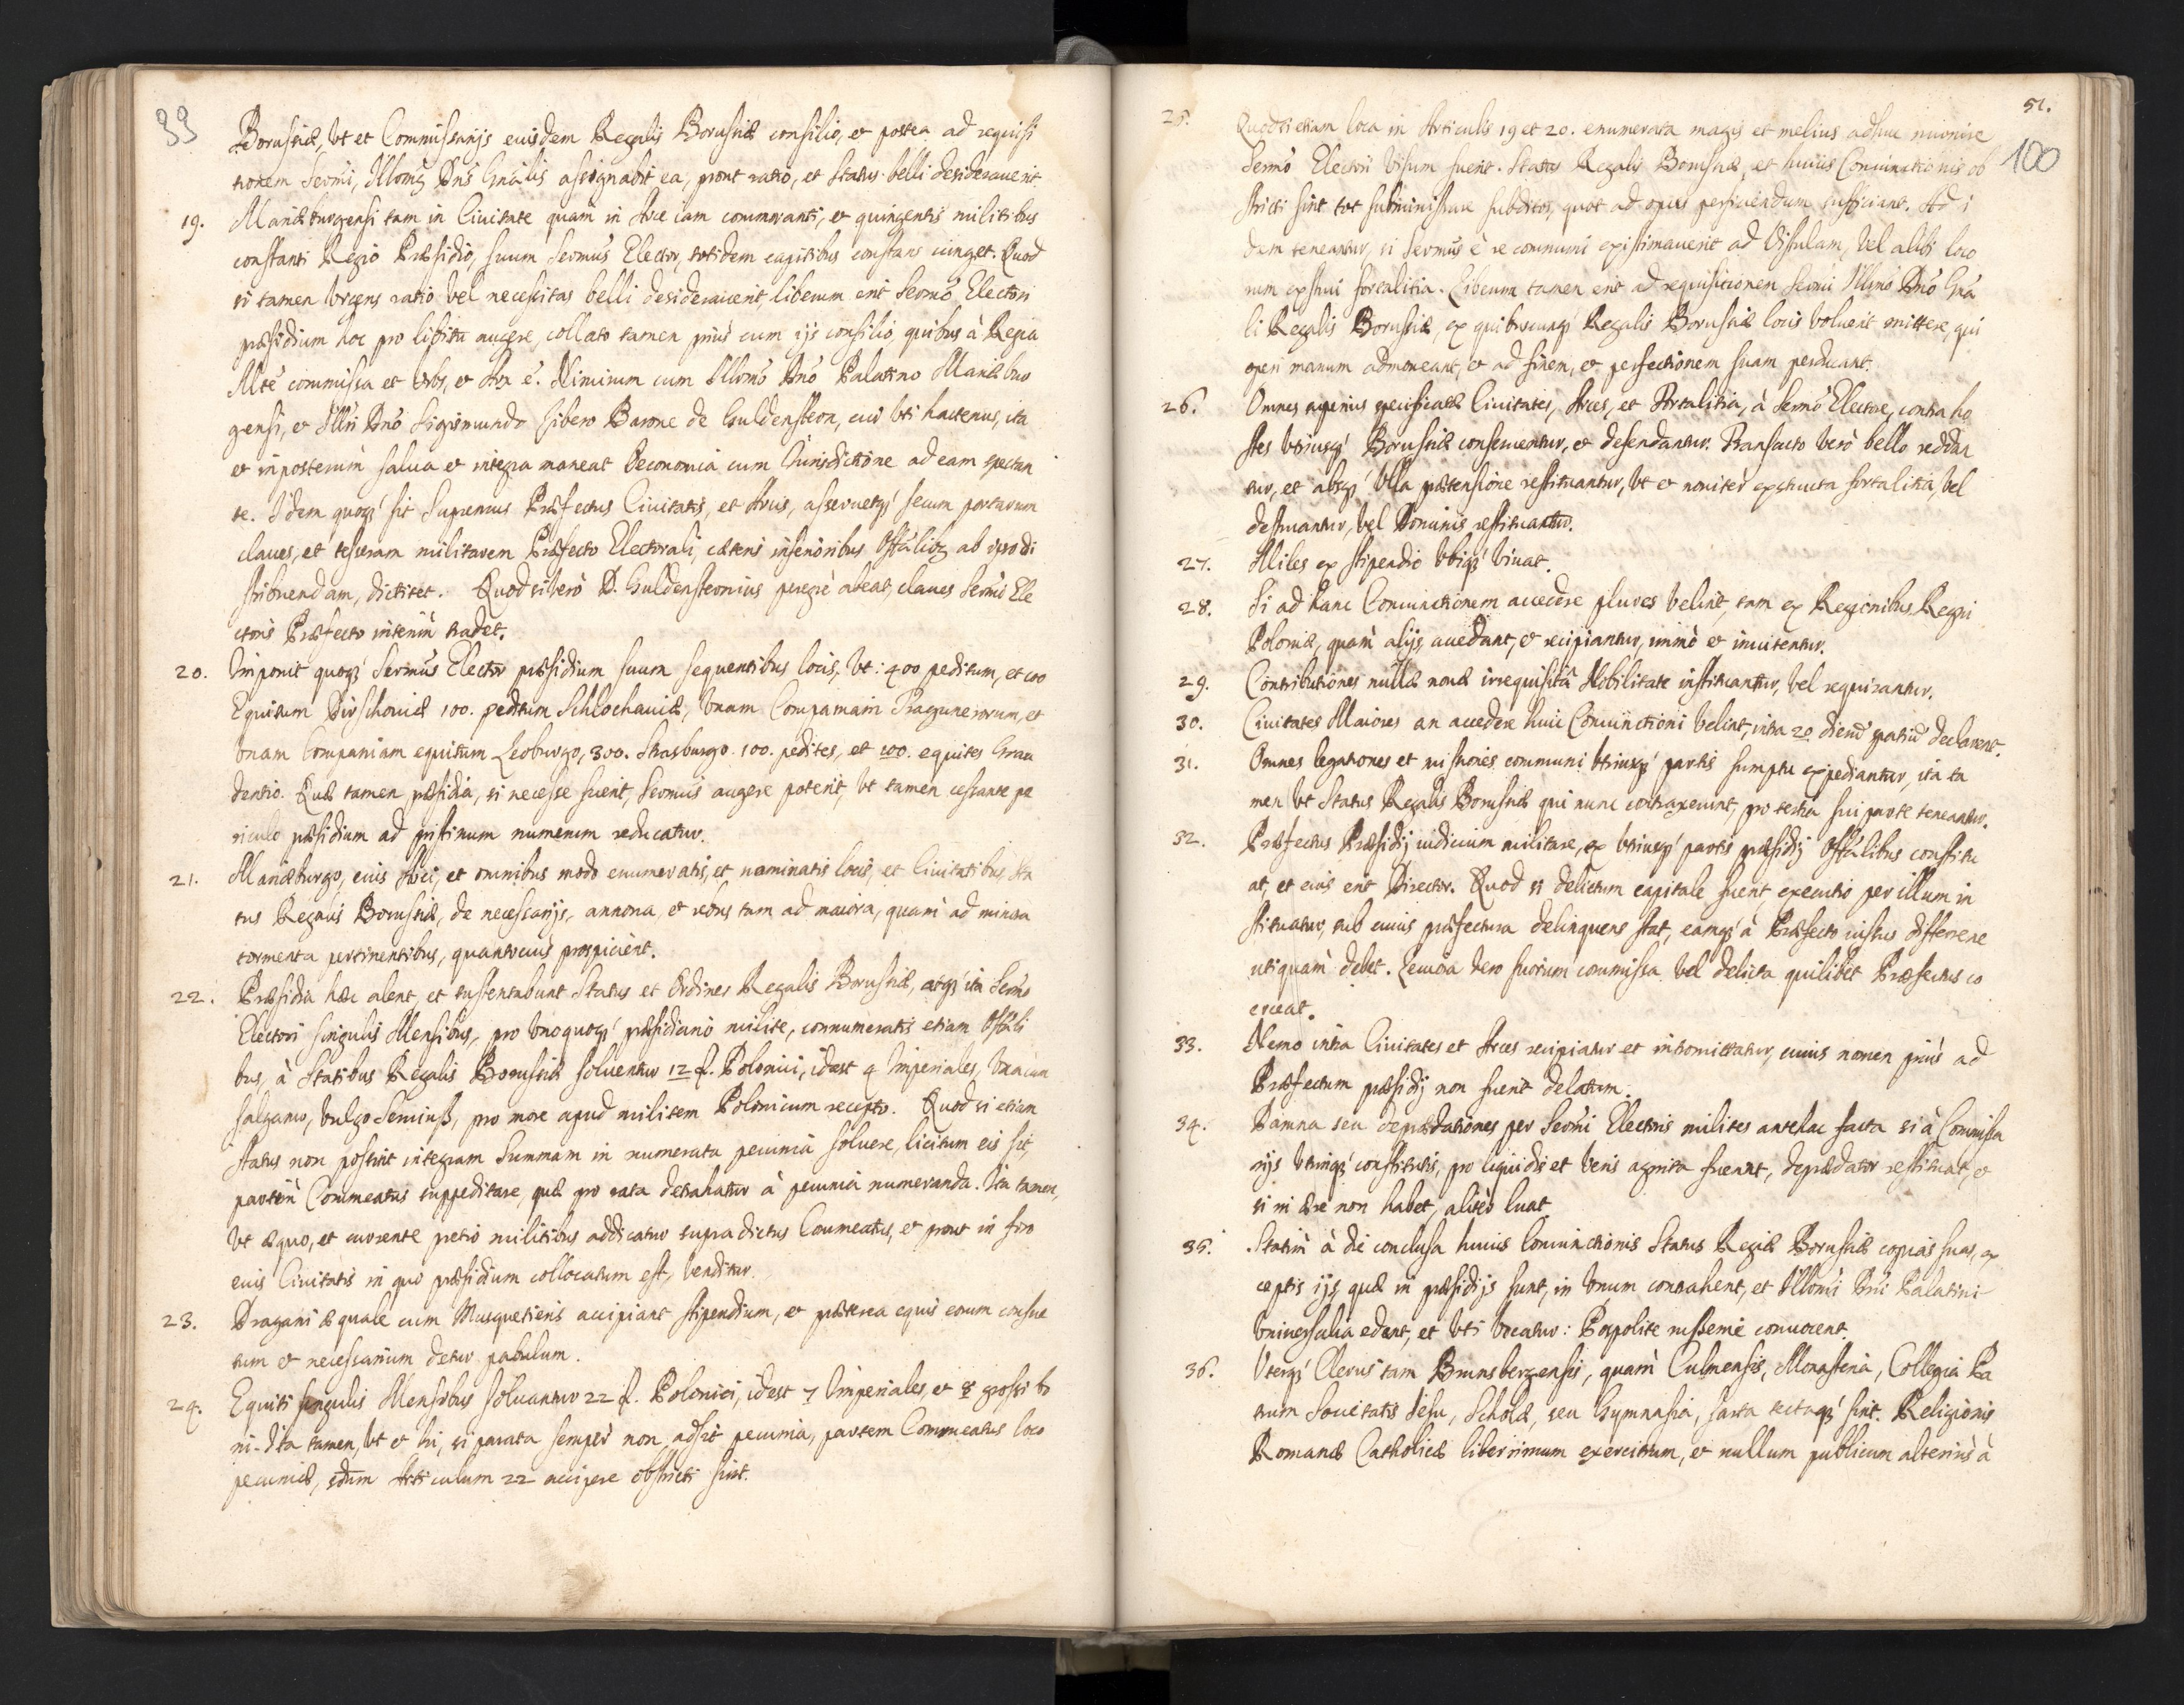 99
Borussiæ, vt et Commissarijs eiusdem Regalis Borussiæ consilio, et postea ad requisi
tionem Sermi, Illomq Dns Gnälis assignabit ea, prout ratio, et Status belli desiderauerit.
19. Mariæburgensi tam in Ciuitate quam in Arce iam commoranti, et quingentis militibus
constanti Regio Præsidio, suum Sermus Elector, totidem capitibus constans iunget. Quod
si tamen vrgens ratio vel necessitas belli desiderauerit liberum erit Sermo Electori
præsidium hoc pro libitu augere, collato tamen prius cum ijs consilio, quibus à Regia
Mte commissa et Vrbs, et Arx e. Nimirum cum Illomo Dno Palatino Mariæbur
gensi, et Illri Dno Sigismundo Libero Barone de Guldenstern, cui vti hactenus, ita
et inposterum salua et integra maneat Oeconomia cum Iurisdictione ad eam spectan
te. Idem quoq sit Supremus Præfectus Ciuitatis, et Arcis, asseruetq secum portarum
claues, et tesseram militarem Præfecto Electorali, cæteris inferioribus Offälibq ab eo di
stribuendam, dictitet. Quod si vero D. Guldensternius peregre abeat, claues Sermi Ele
ctoris Præfecto interim tradet.
20. Imponit quoq Sermus Elector præsidium suum sequentibus locis, vt: 400 peditum, et 100
Equitum Dirschouiæ 100. peditum Schlochauiæ, vnam Compamam Dragunerorum, et
vnam Companiam equitum Leoburgo, 300. Strasburgo. 100. pedites, et 100. equites Grau
dentio. Quæ tamen præsidia, si necesse fuerit, Sermus augere poterit, vt tamen cessante pe
riculo præsidium ad pristinum numerum reducatur.
21. Mariæburgo, eius Arci, et omnibus modo enumeratis, et nominatis locis, et Ciuitatibus Sta
tus Regalis Borussiæ, de necessarijs, annona, et rebus tam ad maiora, quam ad minora
tormenta pertinentibus, quantocius prospicient.
22. Præsidia hæc alent, et sustentabunt Status et Ordines Regalis Borussiæ, atq ita Sermo
Electori singulis Mensibus, pro vnoquoq præsidiario milite, connumeratis etiam Offäli
bus, à Statibus Regalis Borussiæ soluentur 12 f. Polonici, idest 4 Imperiales, vna cum
salgamo, vulgo Seruiuß, pro more apud militem Polonicum recepto. Quod si etiam
Status non possint integram Summam in numerata pecunia soluere, licitum eis sit
partem Commeatus suppeditare, quæ pro rata detrahatur à pecunia numeranda. Ita tamen,
vt æquo, et currente pretio militibus addicatur supra dictus Commeatus, et prout in foro
euis Ciuitatis in quo præsidium collocatum est, venditur.
23. Dragani æquale cum Musquetieris accipiant stipendium, et præterea equis eorum consue
tum et necessarium detur pabulum.
24. Equiti singulis Mensibus soluantur 22 f. Polonici, idest 7 Imperiales, et 8 grossi bo
ni. Ita tamen, vt et hi, si parata semper non adsit pecunia, partem Commeatus loco
pecuniæ, sdum Articulum 22 accipere obstricti sint.
51.
100
25. Quodsi etiam loca in Articulis 19 et 20. enumerata magis et melius adhuc munire
Sermo Electori visum fuerit. Status Regalis Borussiæ, et huius Coniunctionis ob
stricti sint tot subministrare subditos, quot ad opus perficiendum sufficiant. Ad i
dem teneantur, si Sermus è re communi existimauerit ad Vistulam, vel alibi loco
rum exstrui fortalitia. Liberum tamen erit ad requisitionem Sermi Illmo Dno Gna
li Regalis Borussiæ, ex quibuscunq Regalis Borussiæ locis voluerit mittere, qui
operi manum admoueant, et ad finem, et perfectionem suam perducant.
26. Omnes superius specificatæ Ciuitates, Arces, et Fortalitia, à Sermo Electore, contra ho
stes vtriusq Borussiæ conseruentur, et defendantur. Transacto verò bello reddan
tur, et absq vlla prætensione restituantur, vt et nouiter exstructa fortalitia vel
destruantur, vel Dominis restituantur.
27. Miles ex stipendio vbiq viuat.
28. Si ad hanc Coniunctionem accedere plures velint, tam ex Regionibus Regni
Poloniæ, quam alijs, accedant, et recipiantur, immò et inuitentur.
29. Contributiones nullæ nouæ irrequisita Nobilitate instituantur, vel requirantur.
30. Ciuitates Maiores an accedere huic Coniunctioni velint, intra 20 dierum spatium declarent.
31. Omnes legationes et missiones communi vtriusq partis sumptu expediantur, ita ta
men vt Status Regalis Borussiæ qui nunc contraxerunt, pro tertia sui parte teneantur.
32. Præfectus Præsidij iudicium militare, ex vtriusq partis præsidij Offälibus constitu
at, et euis erit Director. Quod si delictum capitale fuerit, executio per illum in
stituatur, sub cuius præfectura delinquens stat, eamq à Præfecto iussus differre
utiquam debet. Leuiora vero suorum commissa vel delicta quilibet Præfectus co
erceat.
33. Nemo intra Ciuitates et Arces recipiatur et intromittatur, cuius nomen prius ad
Præfectum præsidij non fuerit delatum.
34. Damna seu depredationes per Sermi Electoris milites antehac facta si à Commissa
rijs vtrinq constitutis, pro liquidis et veris agnita fuerint, deprædator restituat, et
si in ære non habet, aliter luat.
35. Statim à die conclusa huius Coniunctionis Status Regiæ Borussiæ copias suas, ex
ceptis ijs quæ in præsidijs sunt, in vnum contrahent, et Illomi Dni Palatini
vniuersalia edent, et vti vocatur: Pospolite russenie conuocent.
36. Vterq Clerus tam Brunsbergensis, quam Culmensis, Monasteria, Collegia Pa
trum Societatis Iesu, Scholæ, seu Gymnasia, sarta tectaq sint. Religionis
Romanæ Catholicæ liberrimum exercitium, et nullum publicum alterius à